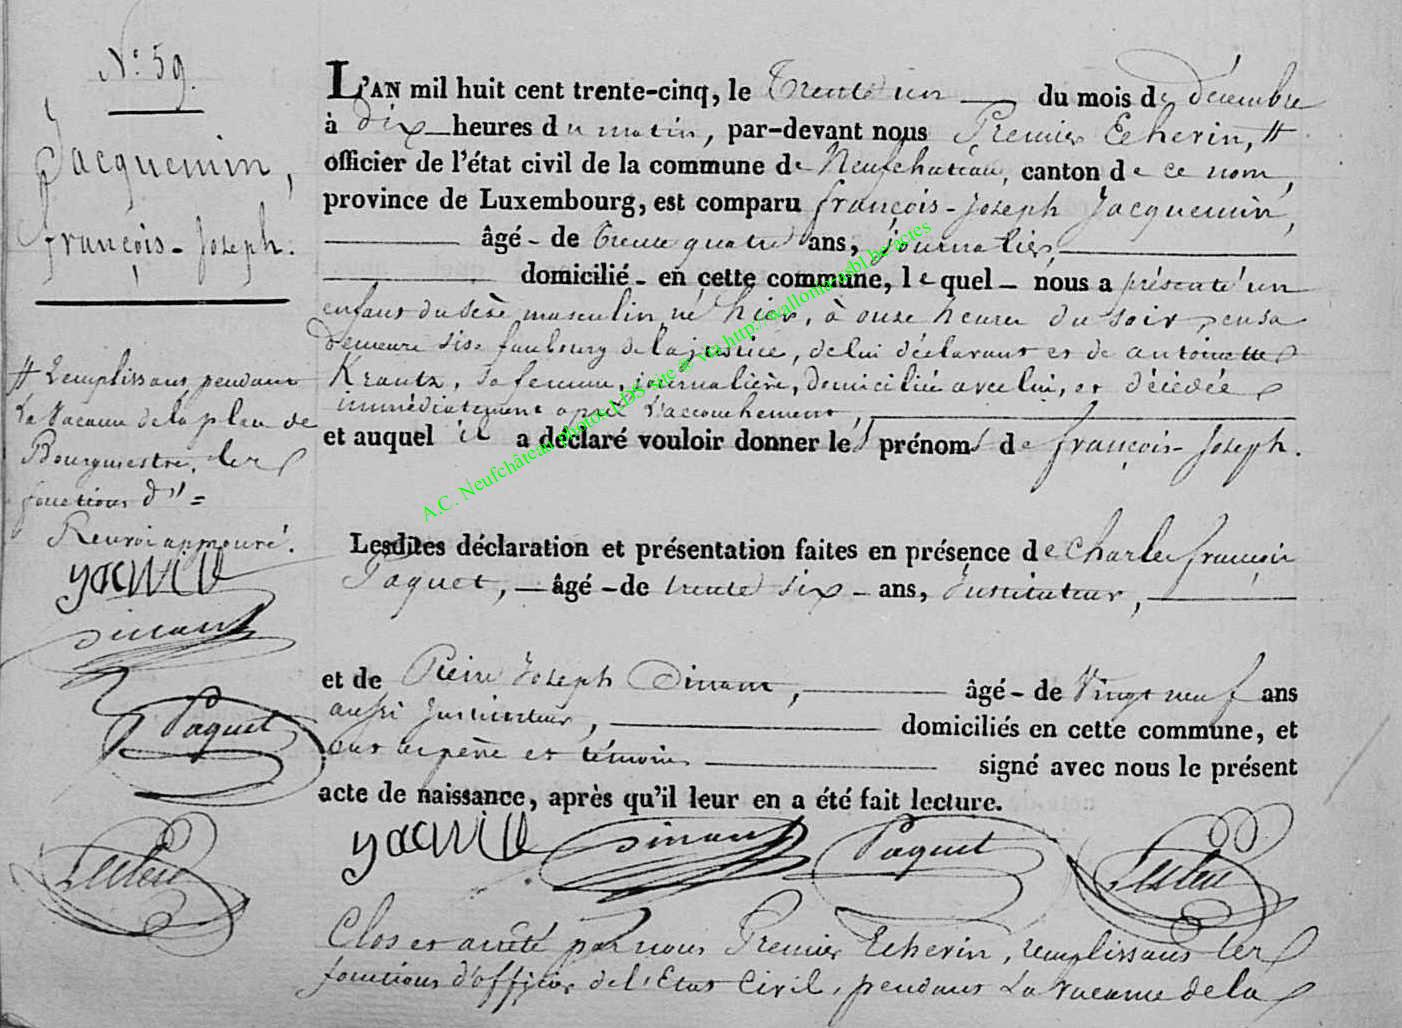 N° 59.
Jacquemin,
françois-Joseph.
# Remplissant pendant
la Vacance de la place de
Bourgmestre, les
fonctions d'=
Renvoi approuvé.
Dinant
Paquet
L'AN mil huit cent trente-cinq, le Trente un du mois de décembre
à dix heures du matin, par-devant nous Premier Echevin, #
officier de l'état civil de la commune de Neufchâteau, canton de ce nom,
province de Luxembourg, est comparu françois-Joseph Jacquemin,
âgé - de trente quatre ans, journalier,
domicilié - en cette commune, lequel - nous a présenté un
enfant du sèxe masculin né hier, à onze heures du soir, en sa
demeure sise faubourg de la justice, de lui déclarant et de antoinette
Krantz, sa femme, journalière, domiciliée avec lui, et décédée
immédiatement après l'accouchement,
et auquel il a déclaré vouloir donner les prénoms de françois-Joseph.
Lesdites déclaration et présentation faites en présence de Charles françois
Paquet, - âgé - de trente six - ans, Instituteur,
et de Pierre Joseph Dinant, âgé - de Vingt neuf ans
aussi Instituteur, domiciliés en cette commune, et
ont les père et témoins signé avec nous le présent
acte de naissance, après qu'il leur en a été fait lecture.
Dinant Paquet
Clos et arrêté par nous Premier Echevin, remplissant les
fonctions d'officier de l'Etat Civil, pendant la vacance de la
A.C. Neufchâteau photos LDS site @ via http://wallonia-asbl.be/actes